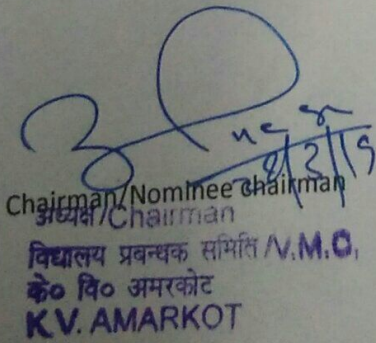 Chairman/Nominee chairman
अध्यक्ष/Chairman
विद्यालय प्रबन्धक समिति/V.M.C,
के० वि० अमरकोट
K.V. AMARKOT